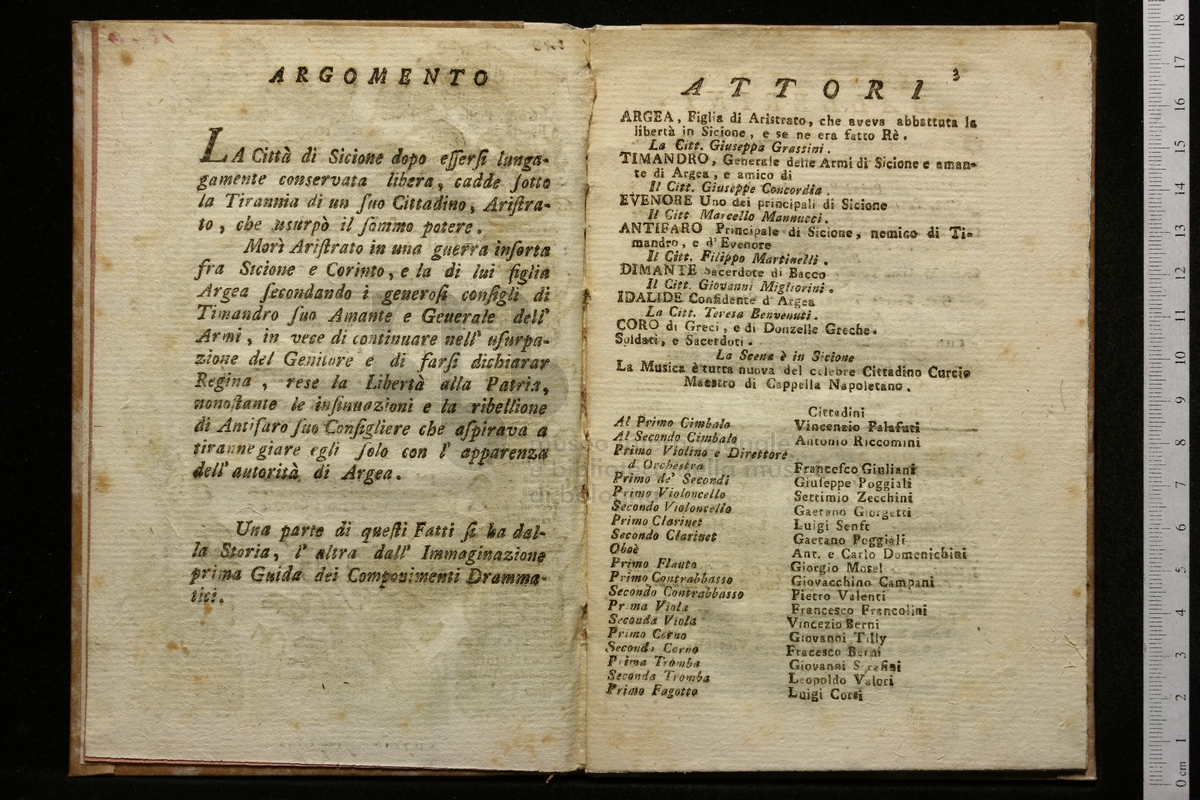 ARGOMENTO
LA Città di Sicione dopo eſſerſi lunga-
gamente conservata libera, cadde ſotto
la Tirannia di un ſuo Cittadino, Ariſtra-
to, che usurpò il ſommo potere.
Morì Ariſtrato in una guerra inſorta
fra Sicione e Corinto, e la di lui figlia
Argea ſecondando i generoſi conſigli di
Timandro ſuo Amante e Geuerale dell'
Armi, in vece di continuare nell' uſurpa-
zione del Genitore e di farſi dichiarar
Regina, rese la Libertà alla Patria,
nonoſtante le inſinuazioni e la ribellione
di Antifaro ſuo Conſigliere che aſpirava a
tiranneggiare egli ſolo con l' apparenza
dell' autorità di Argea.
Una parte di queſti Fatti ſi ha dal-
la Storia, l' altra dall' Immaginazione
prima Guida dei Componimenti Dramma-
tici.
3
ATTORI
ARGEA, Figlia di Aristrato, che aveva abbattuta la
libertà in Sicione, e se ne era fatto Rè.
La Citt. Giuseppa Grassini.
TIMANDRO, Generale delle Armi di Sicione e aman-
te di Argea, e amico di
Il Citt. Giuseppe Concordia.
EVENORE Uno dei principali di Sicione
Il Citt Marcello Mannucci.
ANTIFARO Principale di Sicione, nemico di Ti-
mandro, e d' Evenore
Il Citt. Filippo Martinelli.
DIMANTE Sacerdote di Bacco
Il Citt. Giovanni Migliorini.
IDALIDE Confidente d' Argea
La Citt. Teresa Benvenuti.
CORO di Greci, e di Donzelle Greche.
Soldati, e Sacerdoti.
La Scena è in Sicione
La Musica è tutta nuova del celebre Cittadino Curcio
Maestro di Cappella Napoletano.
Cittadini
Al Primo Cimbalo Vincenzio Palafuti
Al Secondo Cimbalo Antonio Riccomini
Primo Violino e Direttore
d Orchestra Francesco Giuliani
Primo de' Secondi Giuseppe Poggiali
Primo Violoncello Settimio Zecchini
Secondo Violoncello Gaetano Giorgetti
Primo Clarinet Luigi Senft
Secondo Clarinet Gaetano Poggiali
Oboè Ant. e Carlo Domenichini
Primo Flauto Giorgio Mosel
Primo Contrabbasso Giovacchino Campani
Secondo Contrabbasso Pietro Valenti
Prima Viola Francesco Francolini
Seconda Viola Vincezio Berni
Primo Corno Giovanni Tilly
Secondo Corno Fracesco Berni
Prima Tromba Giovanni
Seconda Tromba Leopoldo Valori
Primo Fagotto Luigi Corsi
0 cm 1 2 3 4 5 6 7 8 9 10 11 12 13 14 15 16 17 18